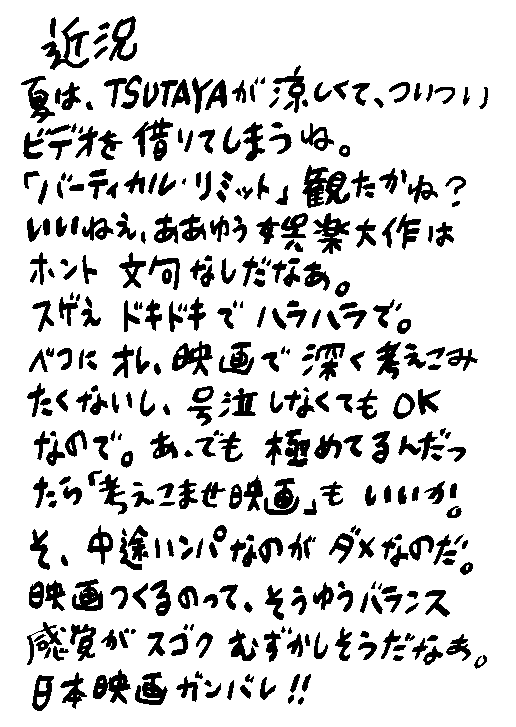 近況
夏は、TSUTAYAが涼しくて、ついつい
ビデオを借りてしまうね。
「バーティカル・リミット」観たかね？
いいねぇ、ああゆう娯楽大作は
ホント文句なしだなぁ。
スゲぇドキドキでハラハラで。
ベコにオレ、映画で深く考えこみ
たくないし、号泣しなくてもOK
なので。あ、でも極めてるんだっ
たら「考えこませ映画」もいいか。
そ、中途ハンパなのがダメなのだ。
映画つくるのって、そうゆうバランス
感覚がスゴクむずかしそうだなぁ。
日本映画ガンバレ!!